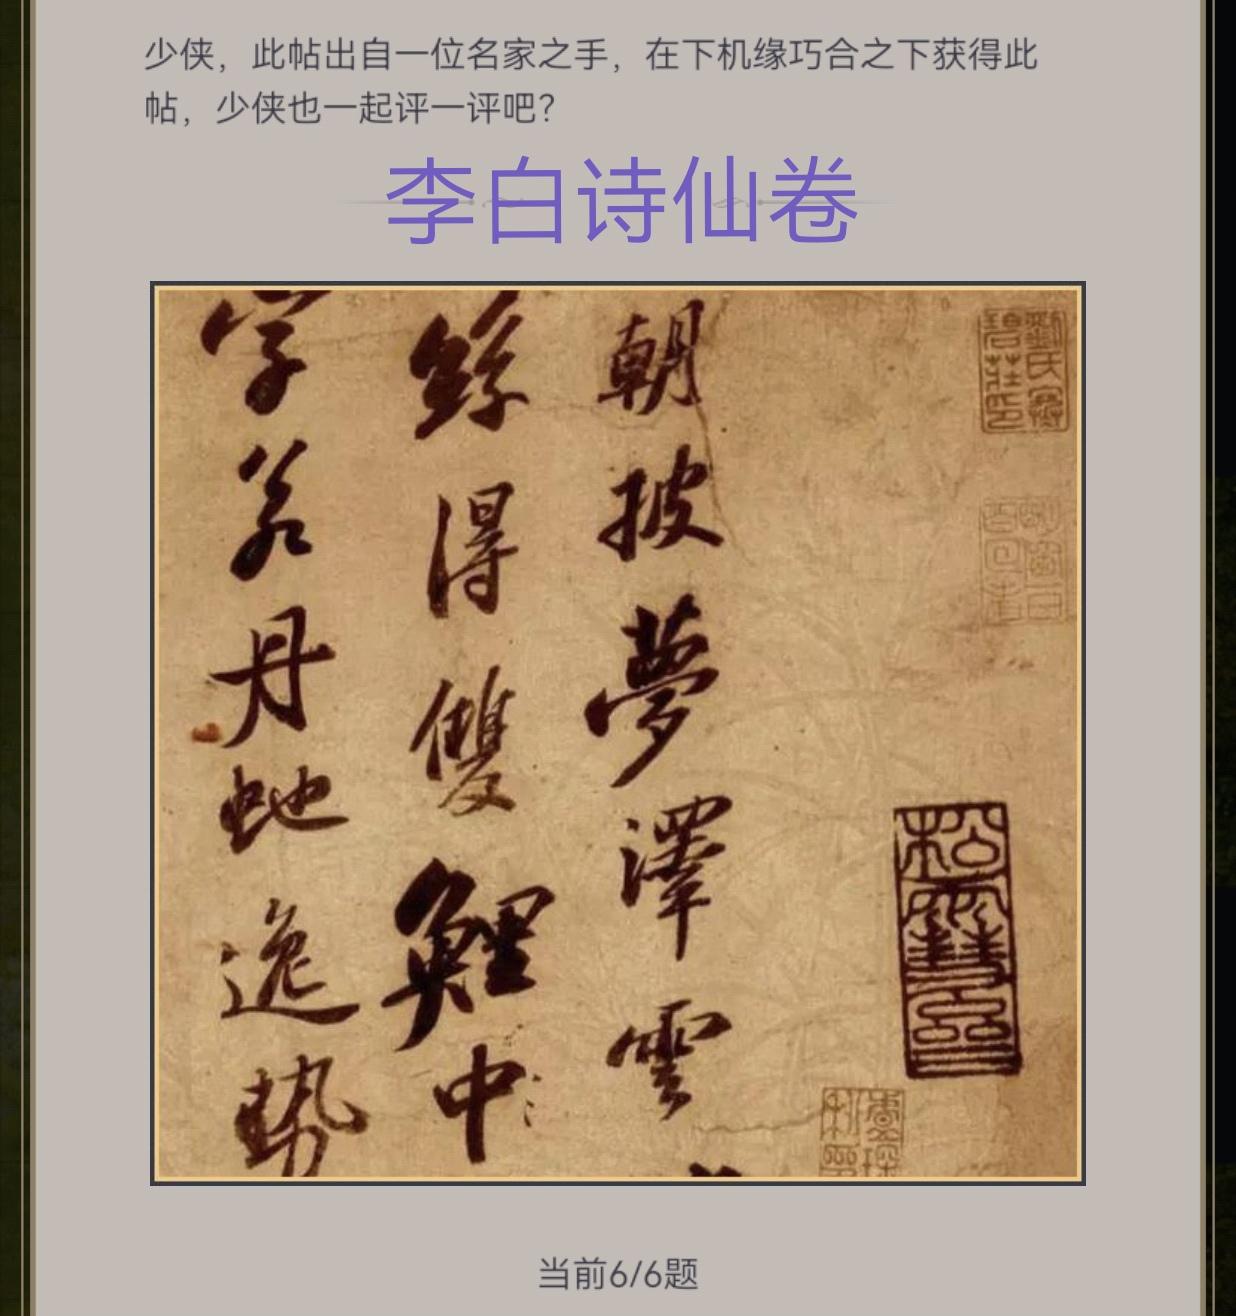 少侠，此帖出自一位名家之手，在下机缘巧合之下获得此
帖，少侠也一起评一评吧？
李白诗仙卷
朝披夢澤雲
絲得雙鯉中
字若丹虵逸勢
松雪齋
当前6/6题